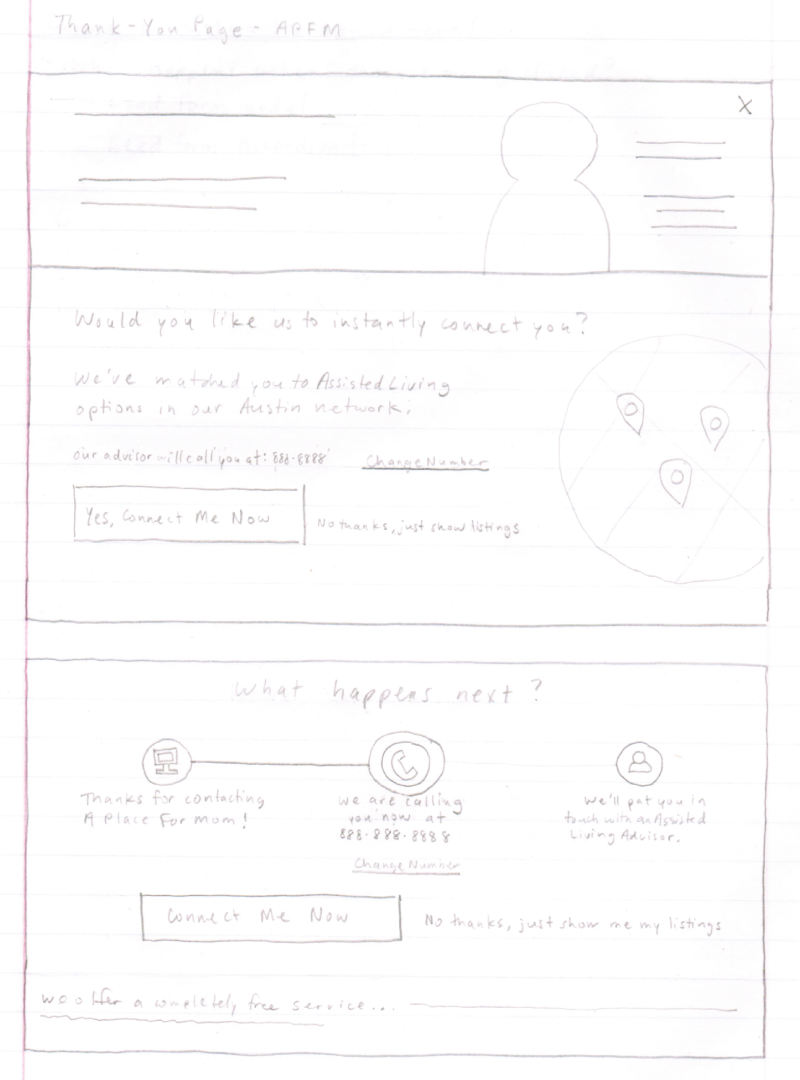 Thank-You Page - APFM
X
Would you like us to instantly connect you?
We've matched you to Assisted Living
options in our Austin network.
our advisor will call you at: 888-8888 Change Number
Yes, Connect Me Now
No thanks, just show listings
What happens next?
Thanks for contacting
A Place For Mom!
We are calling
you now at
888-888-8888
Change Number
We'll put you in
touch with an Assisted
Living Advisor.
Connect Me Now
No thanks, just show me my listings
we offer a completely free service...